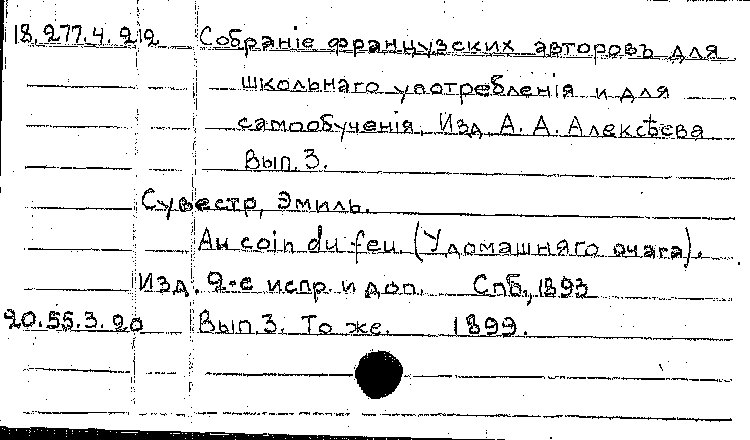 18.277.4.212 Собраніе французских авторовъ для
школьнаго употребленія и для
самообученія. Изд. А. А. Алексѣева
Вып. 3.
Сувестр, Эмиль.
Au coin du feu. (У домашняго очага).
Изд. 2-е испр. и доп. Спб., 1893
20.55.3.20 Вып. 3. То же. 1899.